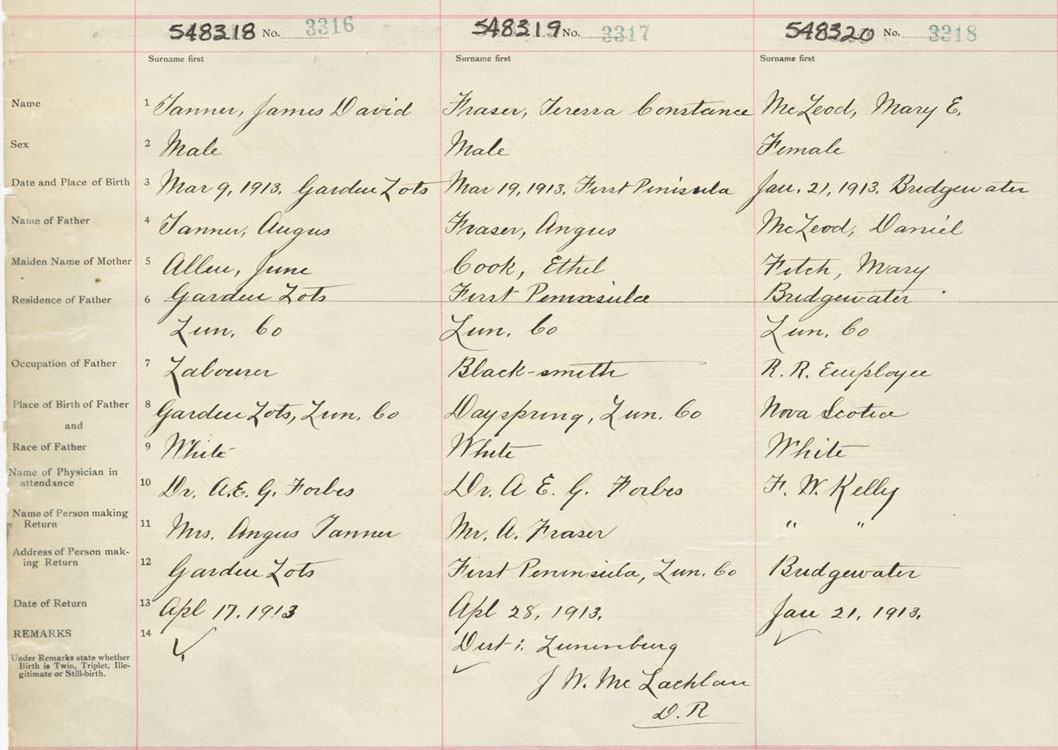 548318 No. 3316 548319 No. 3317 548320 No. 3318
Surname first Surname first Surname first
Name 1 Tanner, James David Fraser, Teressa Constance McLeod, Mary E.
Sex 2 Male Male Female
Date and Place of Birth 3 Mar 9, 1913, Garden Lots Mar 19, 1913, First Peninsula Jan. 21, 1913, Bridgewater
Name of Father 4 Tanner, Angus Fraser, Angus McLeod, Daniel
Maiden Name of Mother 5 Allen, June Cook, Ethel Fitch, Mary
Residence of Father 6 Garden Lots First Peninsula Bridgewater
Lun. Co Lun. Co Lun. Co
Occupation of Father 7 Labourer Black-smith R. R. Employee
Place of Birth of Father 8 Garden Lots, Lun. Co Dayspring, Lun. Co Nova Scotia
and
Race of Father 9 White White White
Name of Physician in attendance 10 Dr. A.E.G. Forbes Dr. A E. G. Forbes F. W. Kelly
Name of Person making Return 11 Mrs. Angus Tanner Mr. A. Fraser " "
Address of Person mak-
ing Return 12 Garden Lots First Peninsula, Lun. Co Bridgewater
Date of Return 13 Apl 17, 1913 Apl 28, 1913. Jan 21, 1913.
REMARKS 14 Dist: Lunenburg
Under Remarks state whether
Birth is Twin, Triplet, Ille-
gitimate or Still-birth.
J W. McLachlan
D. R